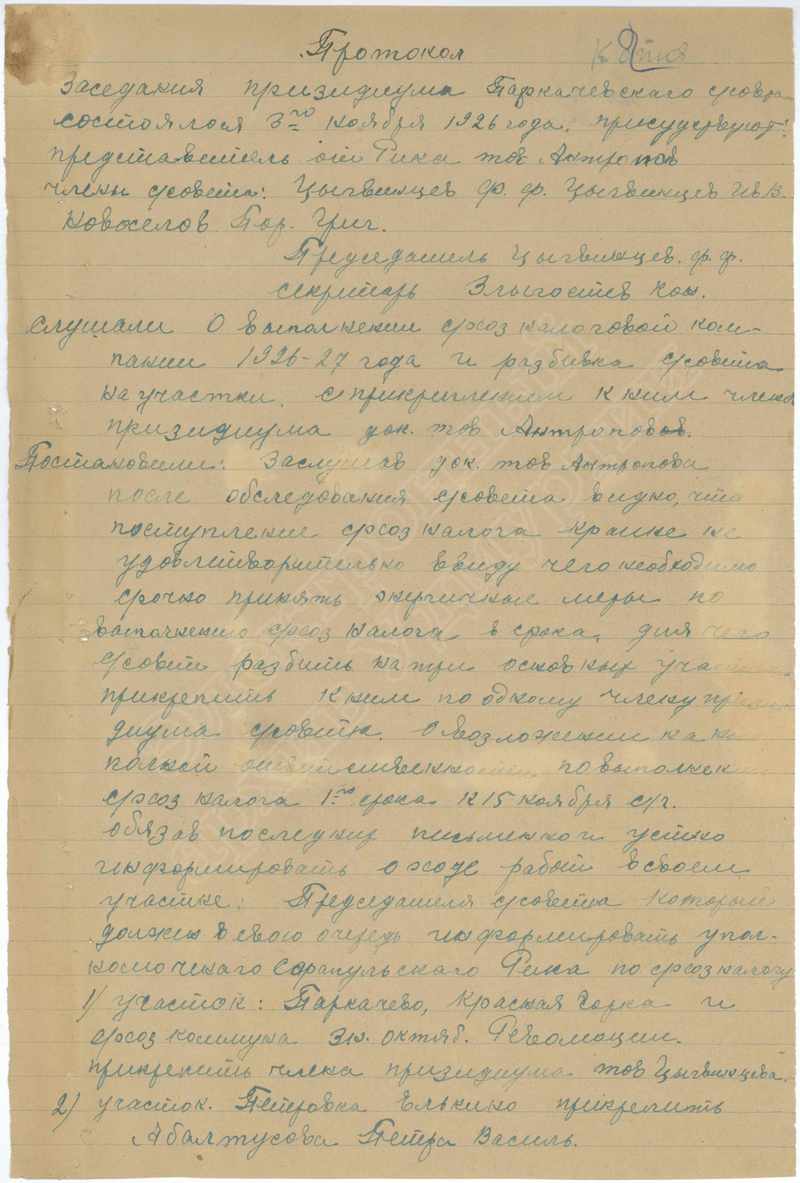 Протокол
Копия
Заседания призидиума Паркачевскаго с/совета
состоялося 3го ноября 1926 года. присудствуют:
представитель от Рика тов Антропов
члены с/совета: Цыгвинцев Ф. Ф. Цыгвинцев Ив В.
Новоселов Пор. Григ.
Председатель Цыгвинцев. Ф. Ф.
секритарь Злыгостев Кон.
слушали О выполнении с/хоз налоговой ком-
пании 1926-27 года и разбивка с/совета
на участки. с прикриплением к ним члена
призидиума док. тов Антропов.
Постановили: Заслушав док. тов Антропова
после обследования с/совета видно, что
поступление с/хоз налога крайне не
удовлтворительно ввиду чего необходимо
срочно принять энергичные меры по
выполнению с/хоз налога в срока, для чего
с/совет разбить на три основных
прикрепить к ним по одному члену
диума с/совета. О возложении на
полной по выполнен
с/хоз налога 1го срока к 15 ноября с/г.
обязав последних письменно и устно
информировать о ходе работ в своем
участке: Председателя с/совета который
должен в свою очередь информировать упол-
номочнаго Сарапульскаго Рика по с/хоз налогу
1/ участок: Паркачево, Красная Горка и
с/хоз коммуна Зн. октяб. Революции.
прикрепить члена призидиума тов Цыгвинцева.
2) участок. Петровка Елькино прикрепить
Абалтусова Петра Василь.